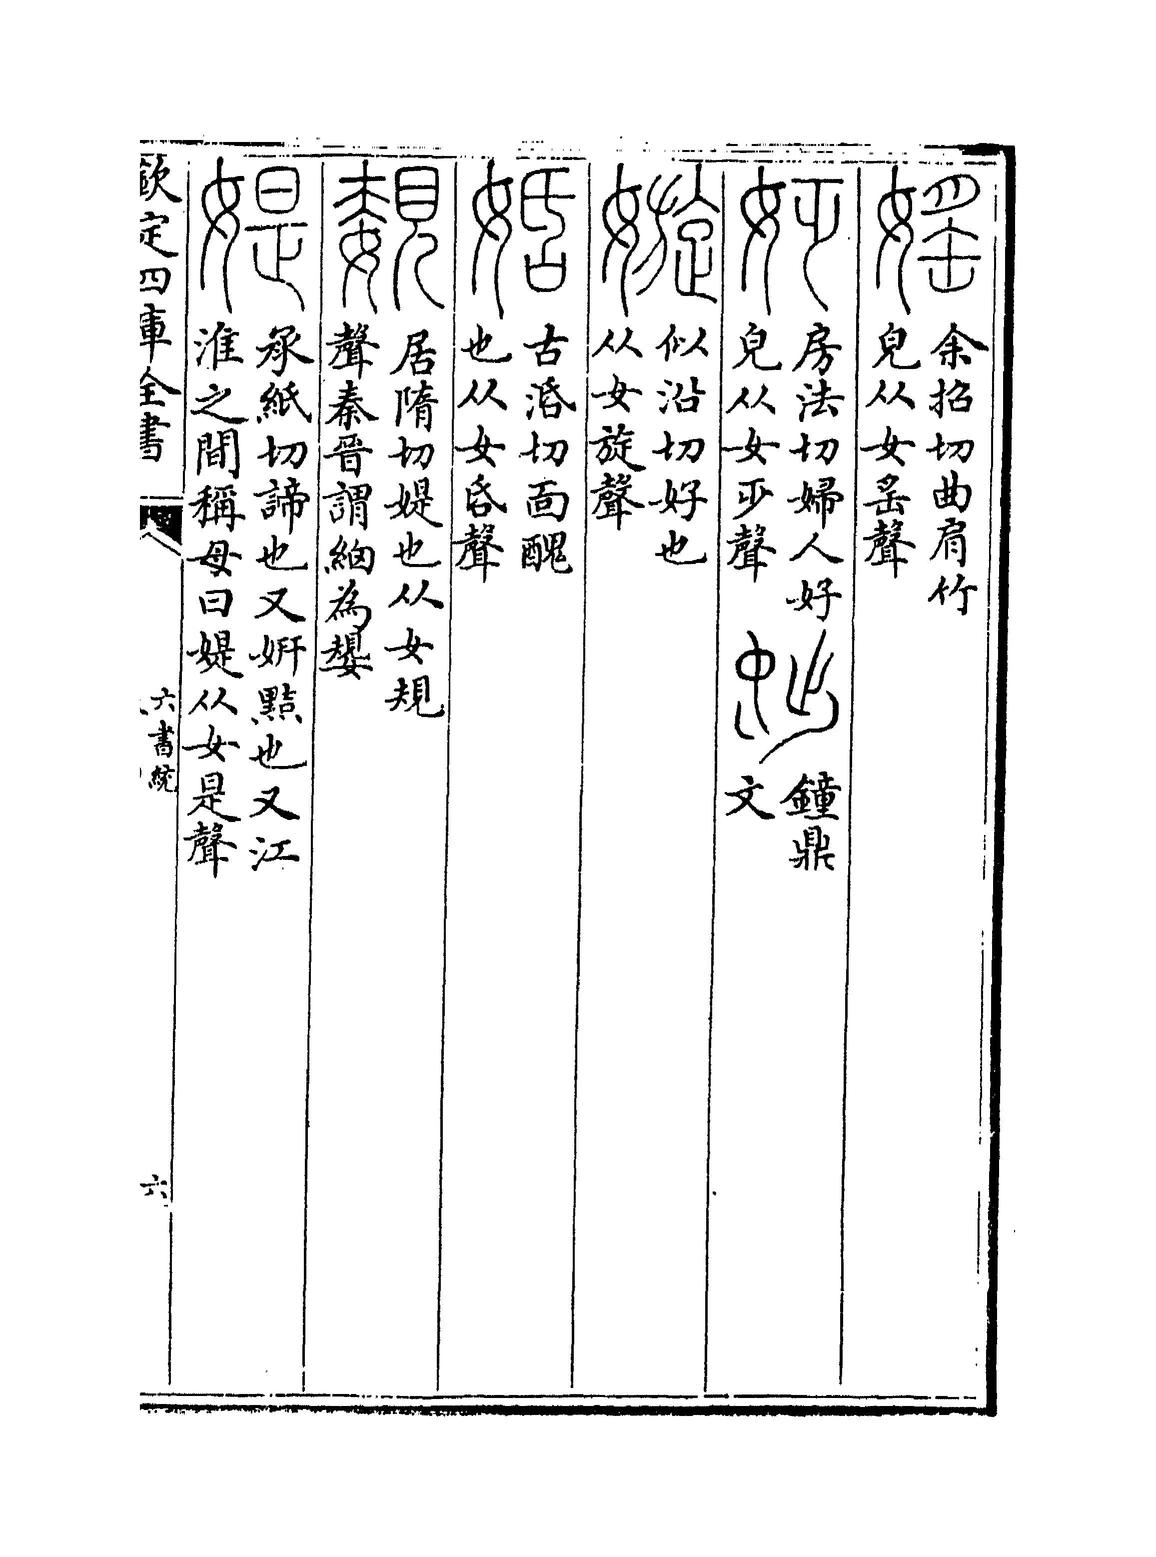 媱
余招切曲肩竹
皃从女䍃聲
姂
房法切婦人好
皃从女乏聲
鐘鼎
文
嫙
似沿切好也
从女旋聲
姡
古𣴠切面醜
也从女𠯑聲
嫢
居隋切媞也从女規
聲秦晉謂細為嫢
媞
承紙切諦也又妍黠也又江
淮之間稱母曰媞从女是聲
欽定四庫全書
六書統
六